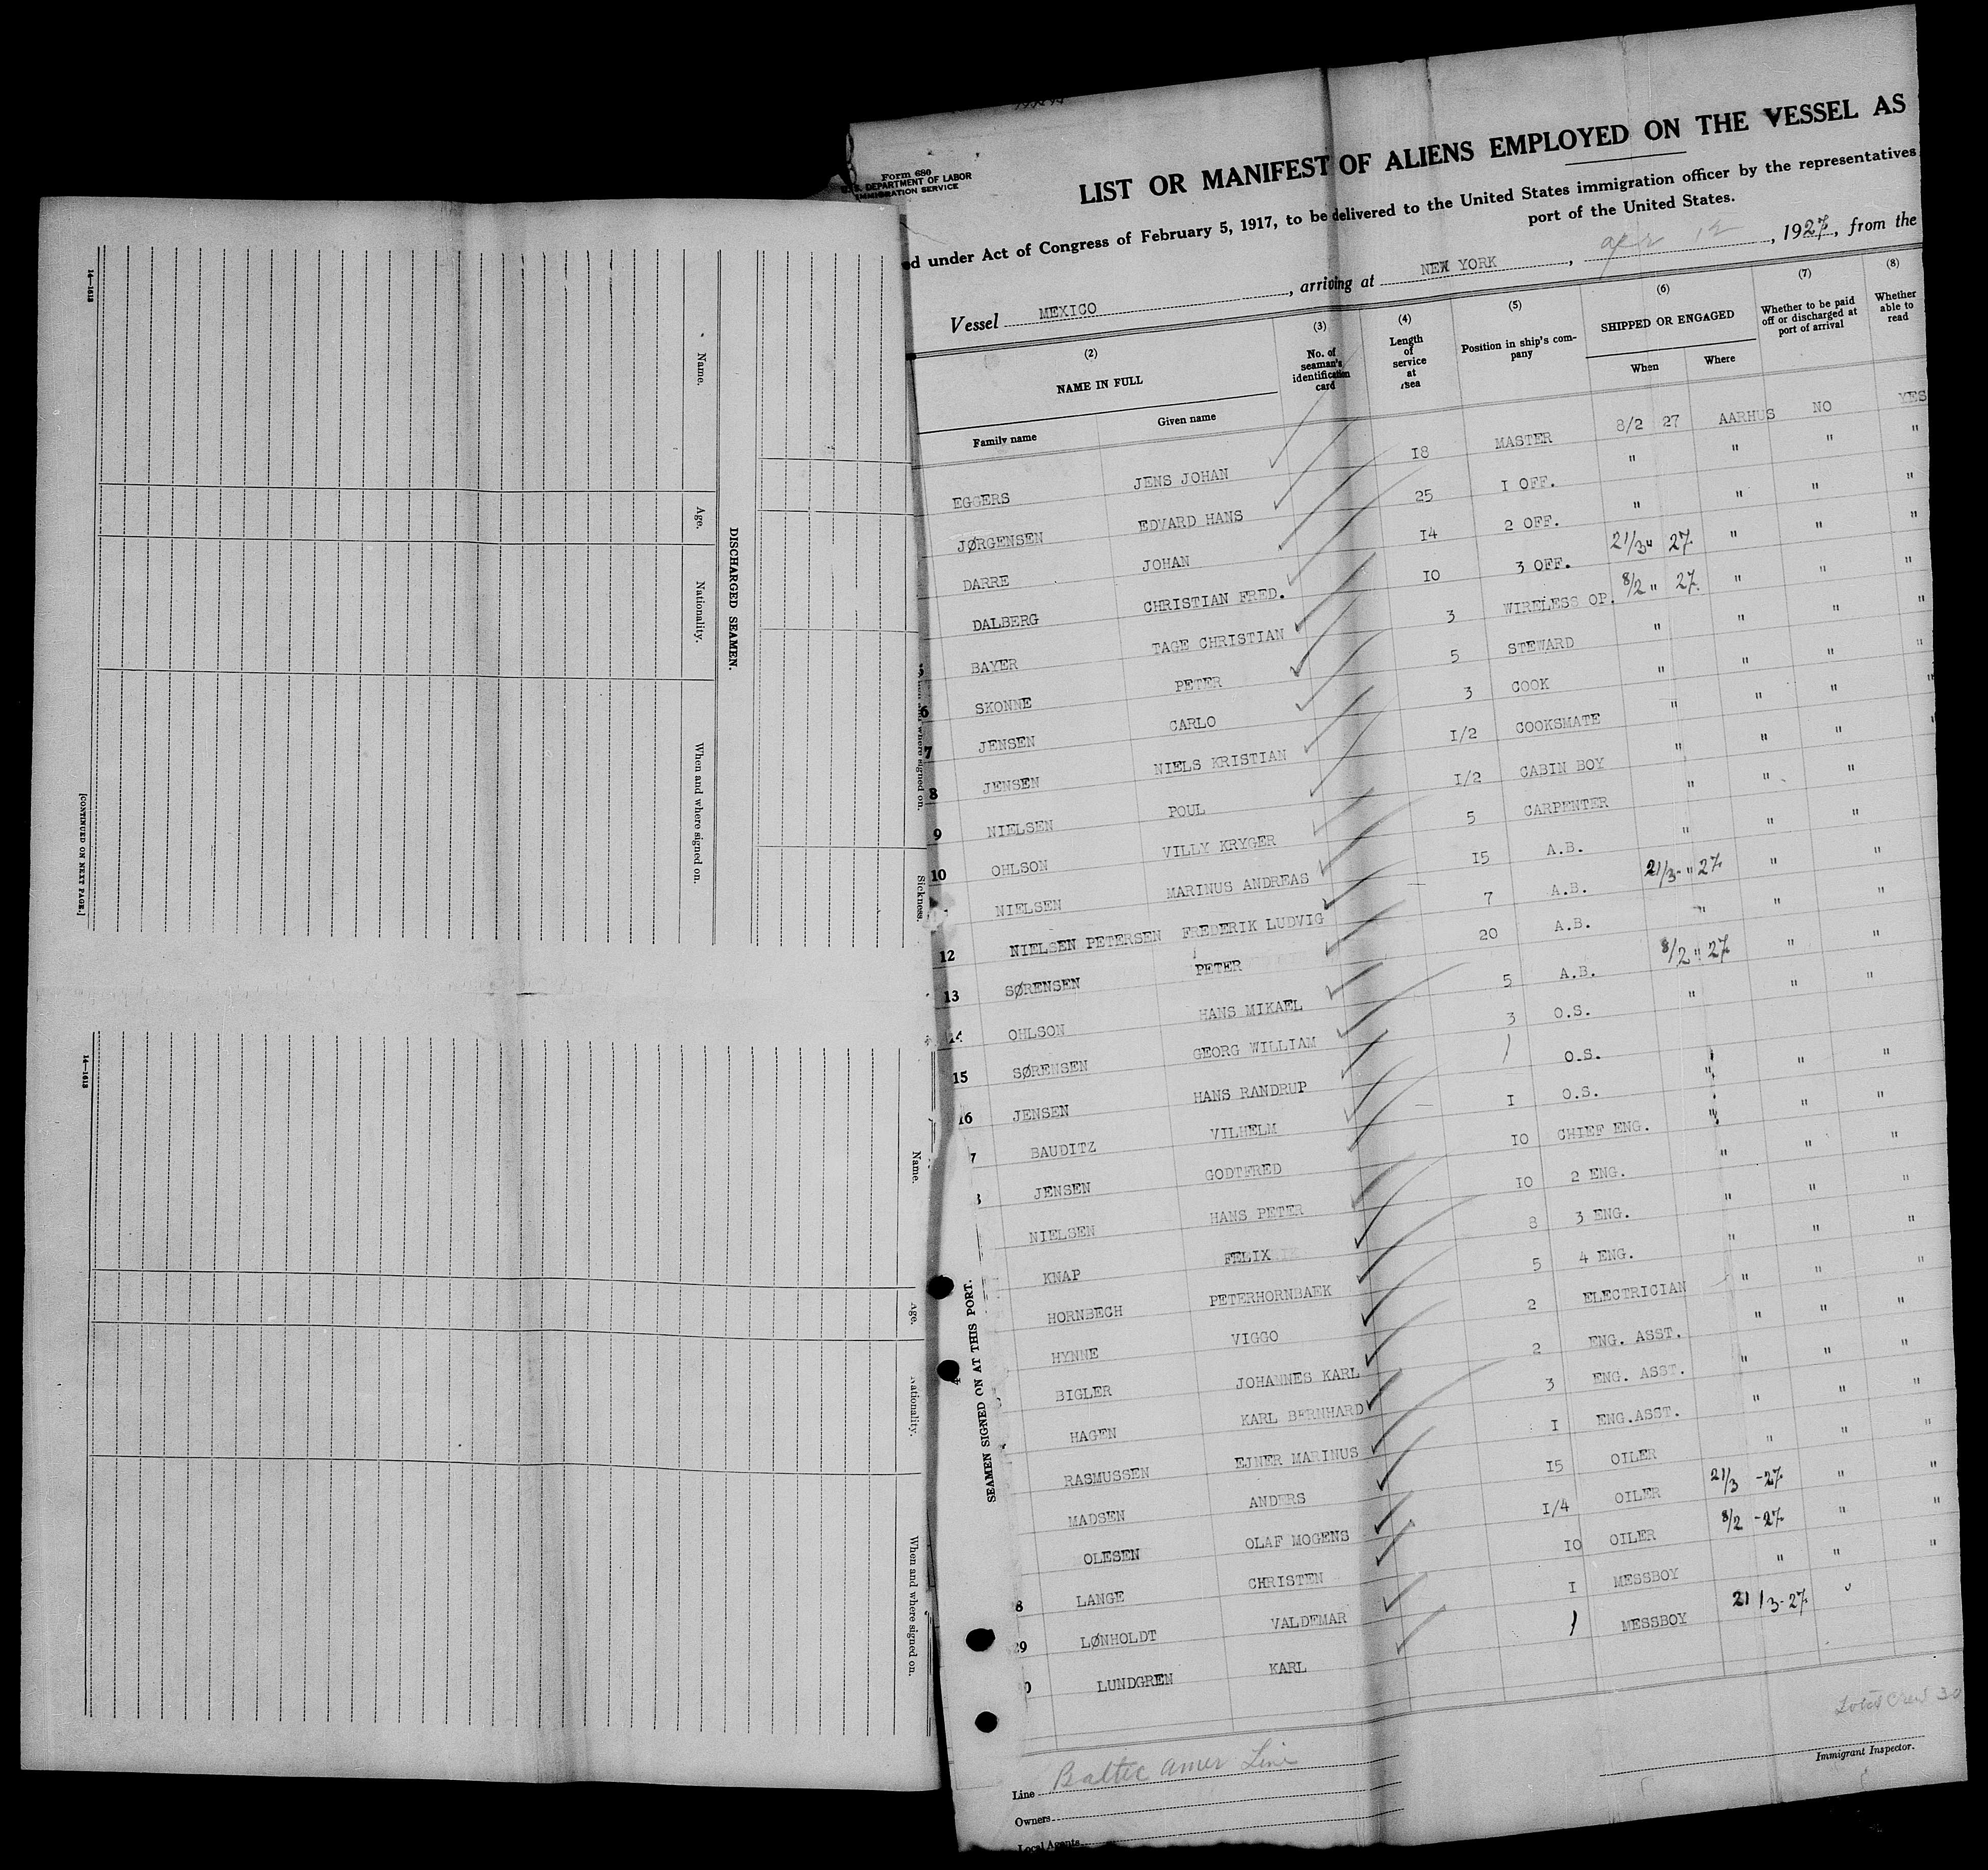 Form 680
U. S. DEPARTMENT OF LABOR
IMMIGRATION SERVICE
LIST OR MANIFEST OF ALIENS EMPLOYED ON THE VESSEL AS
ed under Act of Congress of February 5, 1917, to be delivered to the United States immigration officer by the representatives
port of the United States.
Vessel MEXICO, arriving at NEW YORK, apr 12, 1927, from the
(2) (3) (4) (5) (6) (7) (8)
NAME IN FULL
Family name Given name
No. of seaman's identification card
Length of service at sea
Position in ship's company
SHIPPED OR ENGAGED
When Where
Whether to be paid off or discharged at port of arrival
Whether able to read
EGGERS JENS JOHAN 18 MASTER 8/2 27 AARHUS NO YES
JØRGENSEN EDVARD HANS 25 I OFF. " " " "
DARRE JOHAN 14 2 OFF. " " " "
DALBERG CHRISTIAN FRED. IO 3 OFF. 21/3 " 27. " " "
5 BAYER TAGE CHRISTIAN 3 WIRELESS OP. 8/2 " 27. " " "
6 SKONNE PETER 5 STEWARD " " " "
7 JENSEN CARLO 3 COOK " " " "
8 JENSEN NIELS KRISTIAN I/2 COOKSMATE " " " "
9 NIELSEN POUL I/2 CABIN BOY " " " "
10 OHLSON VILLY KRYGER 5 CARPENTER " " "
NIELSEN MARINUS ANDREAS I5 A.B. " " "
12 NIELSEN PETERSEN FREDERIK LUDVIG 7 A.B. 21/3- " 27. " "
13 SØRENSEN PETER 20 A.B. " " "
14 OHLSON HANS MIKAEL 5 A.B. 8/2 " 27 " "
15 SØRENSEN GEORG WILLIAM 3 O.S. " " "
16 JENSEN HANS RANDRUP 1 O.S. "
7 BAUDITZ VILHELM I O.S. " " "
JENSEN GODTFRED IO CHIEF ENG. " " "
NIELSEN HANS PETER IO 2 ENG. " " "
KNAP FELIX 8 3 ENG. " " "
HORNBECH PETERHORNBAEK 5 4 ENG. " " "
HYNNE VIGGO 2 ELECTRICIAN " " "
BIGLER JOHANNES KARL 2 ENG. ASST. " " "
HAGEN KARL BERNHARD 3 ENG. ASST. " " "
RASMUSSEN EJNER MARINUS I ENG.ASST. " " "
MADSEN ANDERS I5 OILER " " "
OLESEN OLAF MOGENS I/4 OILER 21/3 -27. " "
8 LANGE CHRISTEN IO OILER 8/2 -27. " "
29 LØNHOLDT VALDEMAR I MESSBOY " " "
0 LUNDGREN KARL 1 MESSBOY 21/3-27. "
Total Crew 30
Immigrant Inspector.
Line Baltic Amer Line
Owners
Local Agents
SEAMEN SIGNED ON AT THIS PORT.
Name.
Age.
Nationality.
When and where signed on.
14—1613
Sickness.
where signed on.
DISCHARGED SEAMEN.
Name.
Age.
Nationality.
When and where signed on.
14—1613
[CONTINUED ON NEXT PAGE.]